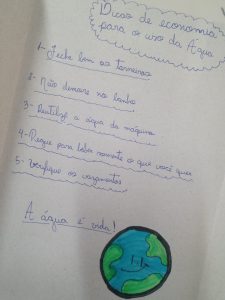 Dicas de economia
para o uso da Água
1- Feche bem as torneiras
2- Não demore no banho
3- Reutilize a água da máquina
4- Pegue para beber somente o que você quer
5- Verifique os vazamentos
A água é vida!